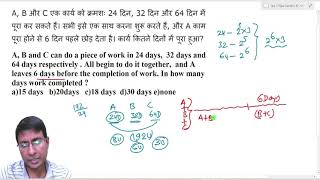 A, B और C एक कार्य को क्रमशः 24 दिन, 32 दिन और 64 दिन में
पूरा कर सकते हैं। सभी इसे एक साथ करना शुरू करते हैं, और A काम
पूरा होने से 6 दिन पहले छोड़ देता है। कार्य कितने दिनों में पूरा हुआ?
A, B and C can do a piece of work in 24 days, 32 days and
64 days respectively . All begin to do it together, and A
leaves 6 days before the completion of work. In how many
days work completed ?
a)15 days b)20days c)18 days d)30 days e)none
24 - 2³×3
32 - 2⁵
64 - 2⁶
2⁶×3
192
24
A B C
24D 32D 64D
192U
8U 6U 3U
A
B
C
6Days
(B+C)